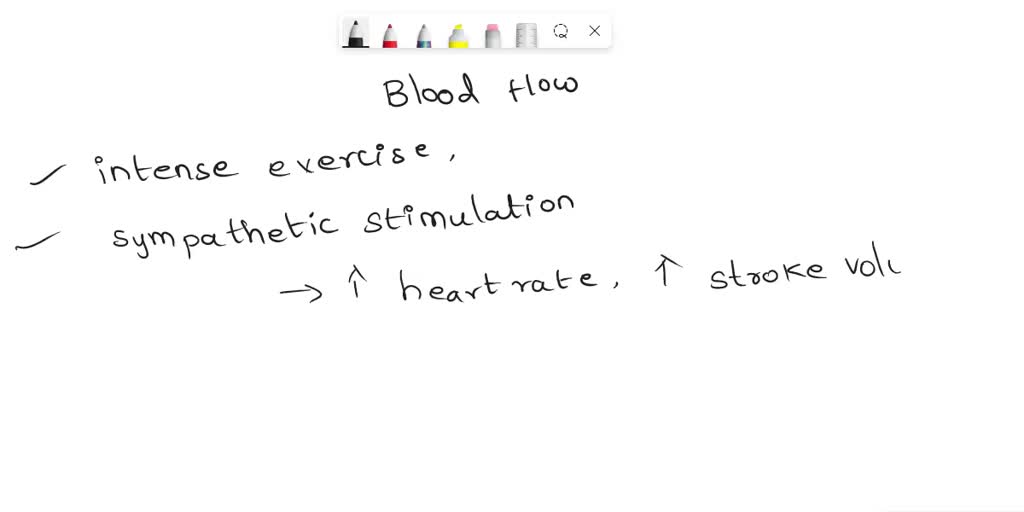 Blood flow
✓ intense exercise,
✓ sympathetic stimulation
→ ↑ heart rate, ↑ stroke volu